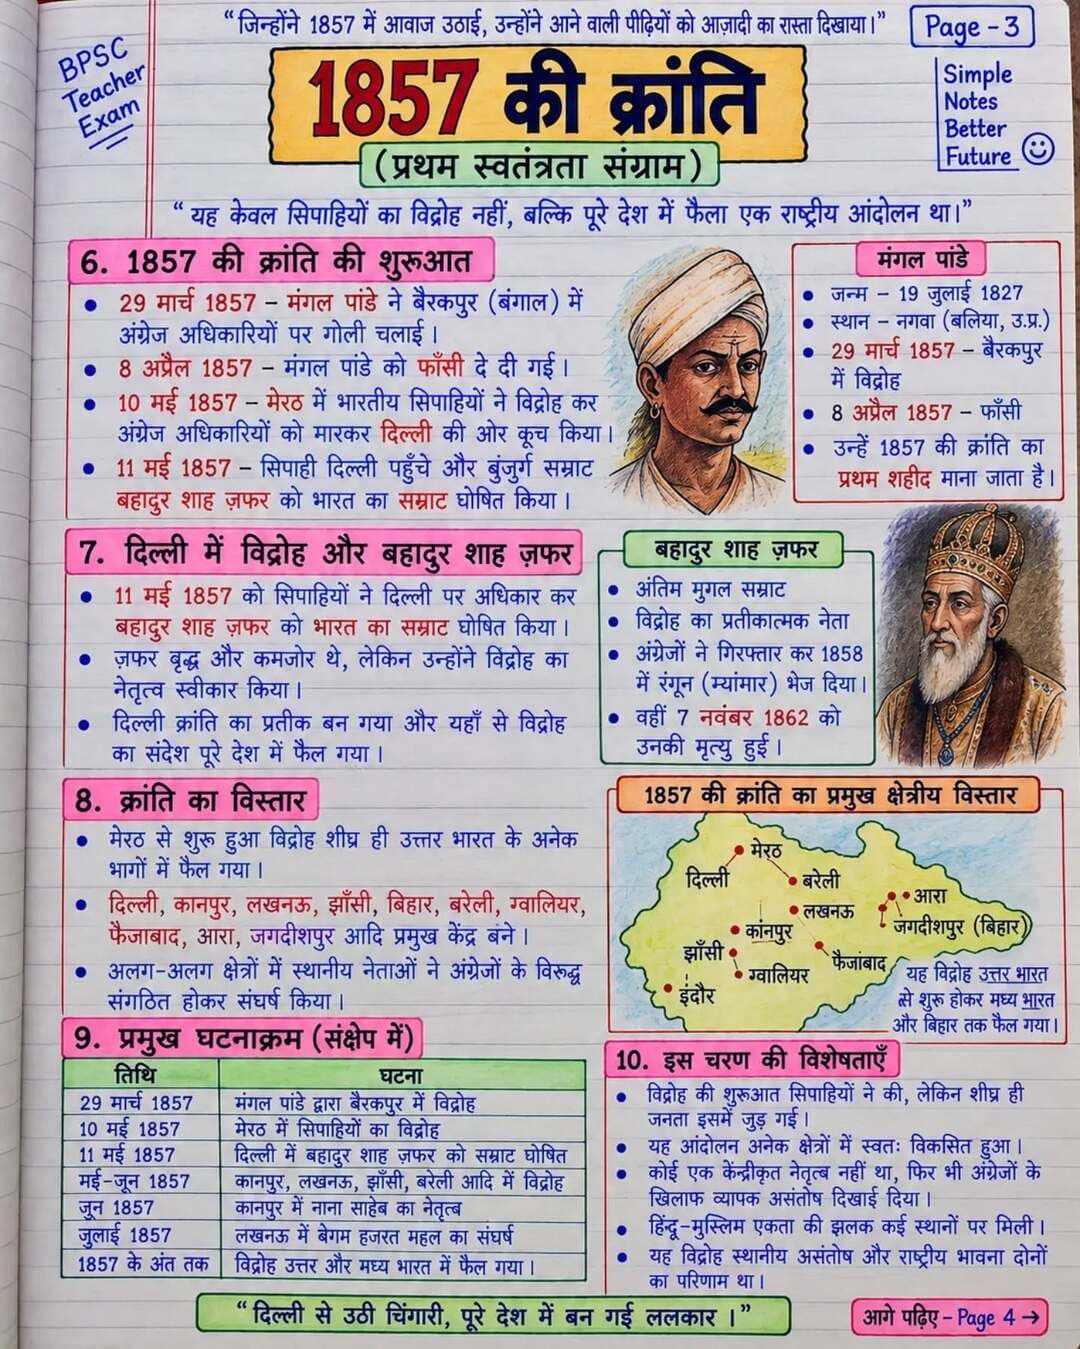 “जिन्होंने 1857 में आवाज उठाई, उन्होंने आने वाली पीढ़ियों को आज़ादी का रास्ता दिखाया।”
Page - 3
BPSC
Teacher
Exam
Simple
Notes
Better
Future
1857 की क्रांति
(प्रथम स्वतंत्रता संग्राम)
“यह केवल सिपाहियों का विद्रोह नहीं, बल्कि पूरे देश में फैला एक राष्ट्रीय आंदोलन था।”
6. 1857 की क्रांति की शुरूआत
• 29 मार्च 1857 – मंगल पांडे ने बैरकपुर (बंगाल) में
अंग्रेज अधिकारियों पर गोली चलाई।
• 8 अप्रैल 1857 – मंगल पांडे को फाँसी दे दी गई।
• 10 मई 1857 – मेरठ में भारतीय सिपाहियों ने विद्रोह कर
अंग्रेज अधिकारियों को मारकर दिल्ली की ओर कूच किया।
• 11 मई 1857 – सिपाही दिल्ली पहुँचे और बुंजुर्ग सम्राट
बहादुर शाह ज़फर को भारत का सम्राट घोषित किया।
मंगल पांडे
• जन्म – 19 जुलाई 1827
• स्थान – नगवा (बलिया, उ.प्र.)
• 29 मार्च 1857 – बैरकपुर
में विद्रोह
• 8 अप्रैल 1857 – फाँसी
• उन्हें 1857 की क्रांति का
प्रथम शहीद माना जाता है।
7. दिल्ली में विद्रोह और बहादुर शाह ज़फर
• 11 मई 1857 को सिपाहियों ने दिल्ली पर अधिकार कर
बहादुर शाह ज़फर को भारत का सम्राट घोषित किया।
• ज़फर वृद्ध और कमजोर थे, लेकिन उन्होंने विंद्रोह का
नेतृत्व स्वीकार किया।
• दिल्ली क्रांति का प्रतीक बन गया और यहाँ से विद्रोह
का संदेश पूरे देश में फैल गया।
बहादुर शाह ज़फर
• अंतिम मुगल सम्राट
• विद्रोह का प्रतीकात्मक नेता
• अंग्रेजों ने गिरफ्तार कर 1858
में रंगून (म्यांमार) भेज दिया।
• वहीं 7 नवंबर 1862 को
उनकी मृत्यु हुई।
8. क्रांति का विस्तार
• मेरठ से शुरू हुआ विद्रोह शीघ्र ही उत्तर भारत के अनेक
भागों में फैल गया।
• दिल्ली, कानपुर, लखनऊ, झाँसी, बिहार, बरेली, ग्वालियर,
फैजाबाद, आरा, जगदीशपुर आदि प्रमुख केंद्र बंने।
• अलग-अलग क्षेत्रों में स्थानीय नेताओं ने अंग्रेजों के विरूद्ध
संगठित होकर संघर्ष किया।
1857 की क्रांति का प्रमुख क्षेत्रीय विस्तार
मेरठ
दिल्ली
बरेली
आरा
लखनऊ
जगदीशपुर (बिहार)
कांनपुर
झाँसी
फैजांबाद
ग्वालियर
इंदौर
यह विद्रोह उत्तर भारत
से शुरू होकर मध्य भारत
और बिहार तक फैल गया।
9. प्रमुख घटनाक्रम (संक्षेप में)
तिथि घटना
29 मार्च 1857 मंगल पांडे द्वारा बैरकपुर में विद्रोह
10 मई 1857 मेरठ में सिपाहियों का विद्रोह
11 मई 1857 दिल्ली में बहादुर शाह ज़फर को सम्राट घोषित
मई-जून 1857 कानपुर, लखनऊ, झाँसी, बरेली आदि में विद्रोह
जून 1857 कानपुर में नाना साहेब का नेतृत्ब
जुलाई 1857 लखनऊ में बेगम हजरत महल का संघर्ष
1857 के अंत तक विद्रोह उत्तर और मध्य भारत में फैल गया।
10. इस चरण की विशेषताएँ
• विद्रोह की शुरूआत सिपाहियों ने की, लेकिन शीघ्र ही
जनता इसमें जुड़ गई।
• यह आंदोलन अनेक क्षेत्रों में स्वतः विकसित हुआ।
• कोई एक केंन्द्रीकृत नेतृत्ब नहीं था, फिर भी अंग्रेजों के
खिलाफ व्यापक असंतोष दिखाई दिया।
• हिंदू-मुस्लिम एकता की झलक कई स्थानों पर मिली।
• यह विद्रोह स्थानीय असंतोष और राष्ट्रीय भावना दोनों
का परिणाम था।
“दिल्ली से उठी चिंगारी, पूरे देश में बन गई ललकार।”
आगे पढ़िए – Page 4 →